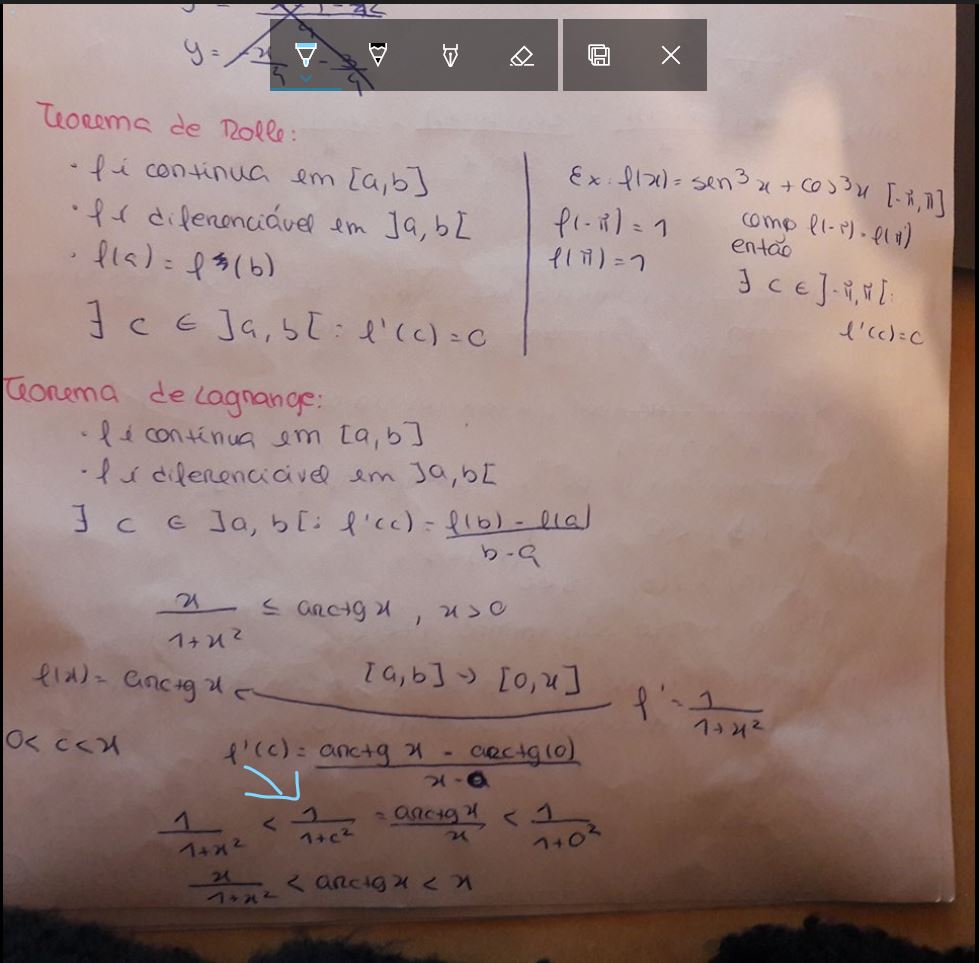 y =
Teorema de Rolle:
· f é continua em [a,b]
· f é diferenciável em ]a,b[
· f(a) = f(b)
∃ c ∈ ]a,b[ : f'(c) = c
Ex: f(x) = sen³x + cos³x [-π,π]
f(-π) = 1
f(π) = 1
como f(-π) = f(π)
então
∃ c ∈ ]-π,π[ :
f'(c) = c
Teorema de Lagrange:
· f é contínua em [a,b]
· f é diferenciável em ]a,b[
∃ c ∈ ]a,b[ : f'(c) = (f(b) - f(a))/(b-a)
x/(1+x²) ≤ arctg x , x > 0
f(x) = arctg x [a,b] → [0,x] f' = 1/(1+x²)
0 < c < x f'(c) = (arctg x - arctg(0))/(x-0)
1/(1+x²) < 1/(1+c²) = arctg x/x < 1/(1+0²)
x/(1+x²) < arctg x < x